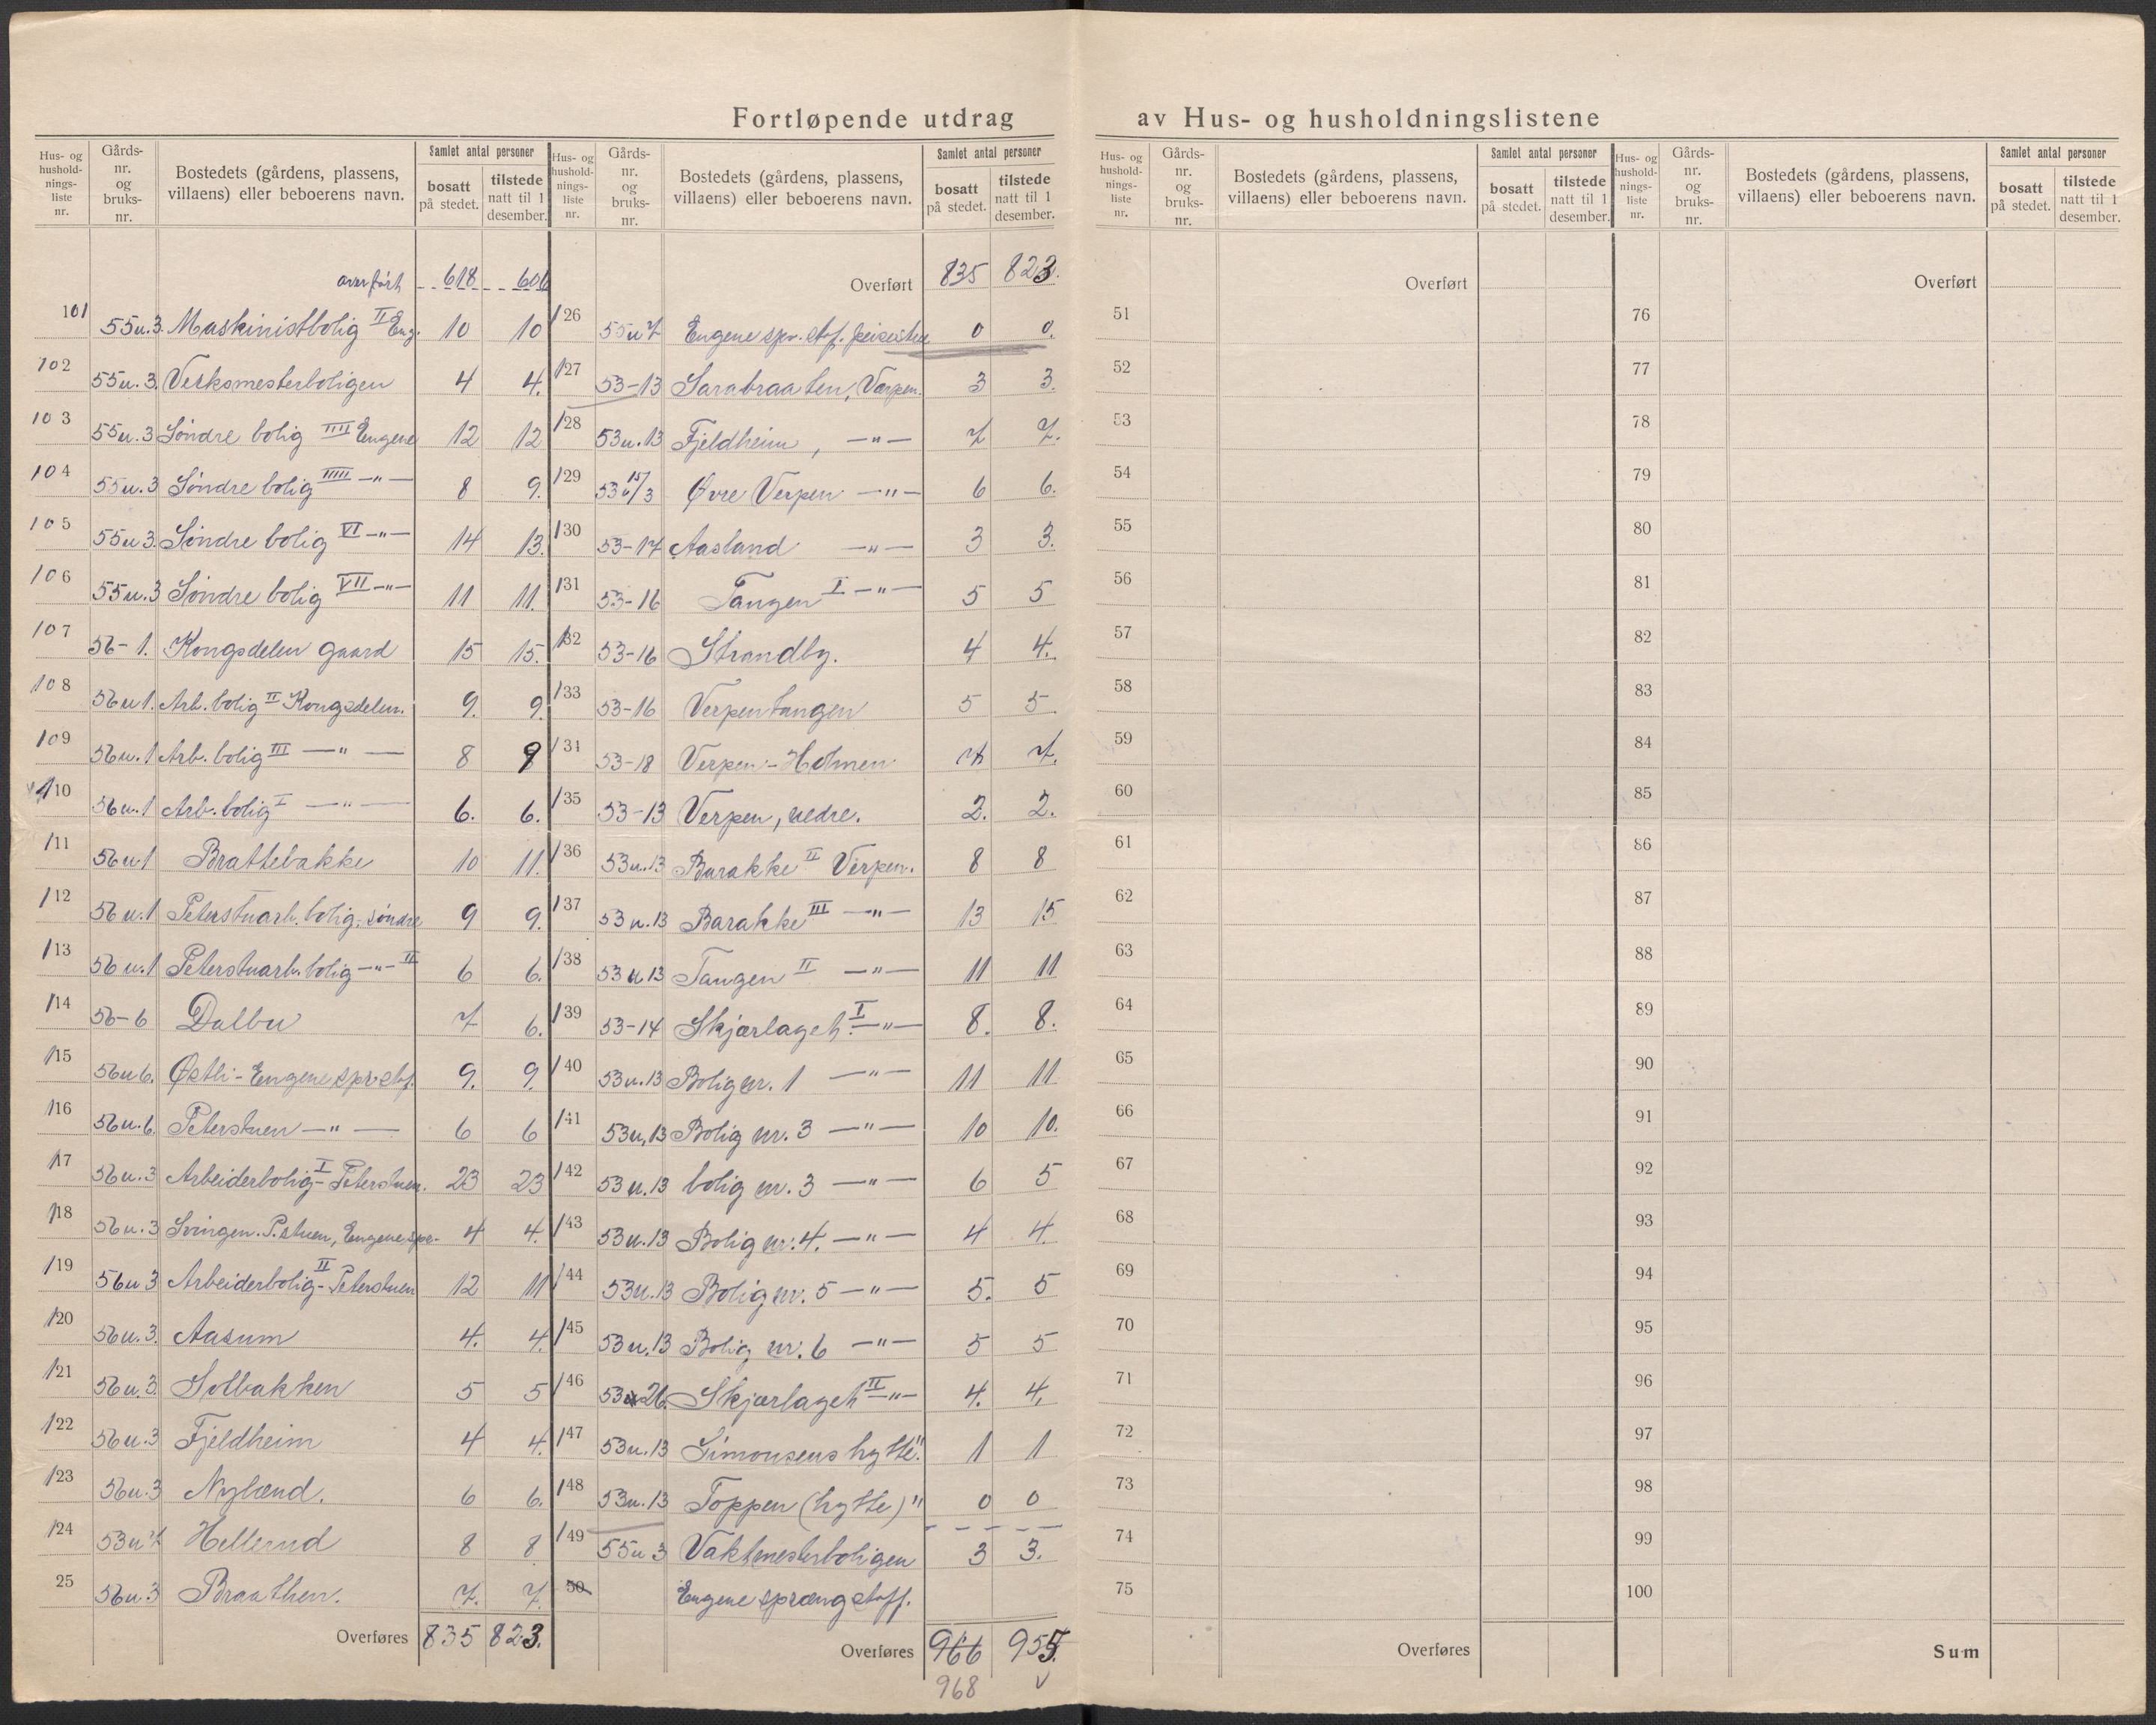 Fortløpende utdrag av Hus- og husholdningslistene
Hus- og hushold- nings- liste nr.
Gårds- nr. og bruks- nr.
Bostedets (gårdens, plassens, villaens) eller beboerens navn.
Samlet antal personer
bosatt på stedet.
tilstede natt til 1 desember.
overført 618 606
101 55u.3. Maskinistbolig II Eng. 10 10
102 55u.3. Verksmesterboligen 4 4.
103 55u.3 Söndre bolig IIII Engene 12 12
104 55u.3 Söndre bolig IIIII -"- 8 9.
105 55u3. Söndre bolig VI -"- 14 13.
106 55u.3 Söndre bolig VII -"- 11 11.
107 56-1. Kongsdelen gaard 15 15.
108 56u1. Arb. bolig II Kongsdelen. 9. 9.
109 56u.1 Arb. bolig III -"- 8 8
110 56u.1 Arb. bolig I -"- 6. 6.
111 56u1 Brattebakke 10 11.
112 56u.1 Peterstuarb. bolig, söndre 9 9.
113 56u.1 Peterstuarb. bolig -"- II 6 6.
114 56-6 Dalbu 7 6.
115 56u6. Østli - Engene spr.stof. 9. 9.
116 56u.6. Peterstuen -"- 6 6
117 56u.3 Arbeiderbolig I - Peterstuen. 23 23
118 56u.3 Svingen. P.stuen, Engene spr. 4 4.
119 56u3 Arbeiderbolig II - Peterstuen 12 11
120 56u.3. Aasum 4. 4.
121 56u.3. Solbakken 5 5
122 56u.3 Fjeldheim 4 4.
123 56u.3 Nylænd. 6 6.
124 53u7 Hellerud 8 8
25 56u.3 Braathen. 7. 7.
Overføres 835 823.
Hus- og hushold- nings- liste nr.
Gårds- nr. og bruks- nr.
Bostedets (gårdens, plassens, villaens) eller beboerens navn.
Samlet antal personer
bosatt på stedet.
tilstede natt til 1 desember.
Overført 835 823.
126 55u7 Engene spr. stof. 0 0.
127 53-13 Sarabraaten, Værpen. 3 3.
128 53u.13 Fjeldheim, -"- 7 7.
129 53 15/3 Øvre Verpen -"- 6 6.
130 53-17 Aasland -"- 3 3.
131 53-16 Tangen I -"- 5 5
132 53-16 Strandby. 4 4.
133 53-16 Verpentangen 5 5
134 53-18 Verpen-Holmen 7 7.
135 53-13 Verpen, nedre. 2. 2.
136 53u.13 Barakke II Verpen. 8 8
137 53u.13 Barakke III -"- 13 15
138 53u13 Tangen II -"- 11 11
139 53-14 Skjærlaget I -"- 8. 8.
140 53u.13 Bolig nr. 1 -"- 11 11
141 53u,13 Bolig nr. 3 -"- 10 10.
142 53u.13 bolig nr. 3 -"- 6 5
143 53u.13 Bolig nr: 4. -"- 4 4
144 53u.13 Bolig nr. 5 -"- 5. 5
145 53u.13 Bolig nr. 6 -"- 5 5
146 53-26. Skjærlaget II -"- 4. 4.
147 53u.13 Simonsens hytte " 1 1
148 53u.13 Toppen (hytte) " 0 0
149 55u3 Vaktmesterboligen 3 3.
50 Engene sprængstoff.
Overføres 966 955.
968 v
Hus- og hushold- nings- liste nr.
Gårds- nr. og bruks- nr.
Bostedets (gårdens, plassens, villaens) eller beboerens navn.
Samlet antal personer
bosatt på stedet.
tilstede natt til 1 desember.
Overført
51
52
53
54
55
56
57
58
59
60
61
62
63
64
65
66
67
68
69
70
71
72
73
74
75
Overføres
Hus- og hushold- nings- liste nr.
Gårds- nr. og bruks- nr.
Bostedets (gårdens, plassens, villaens) eller beboerens navn.
Samlet antal personer
bosatt på stedet.
tilstede natt til 1 desember.
Overført
76
77
78
79
80
81
82
83
84
85
86
87
88
89
90
91
92
93
94
95
96
97
98
99
100
Sum